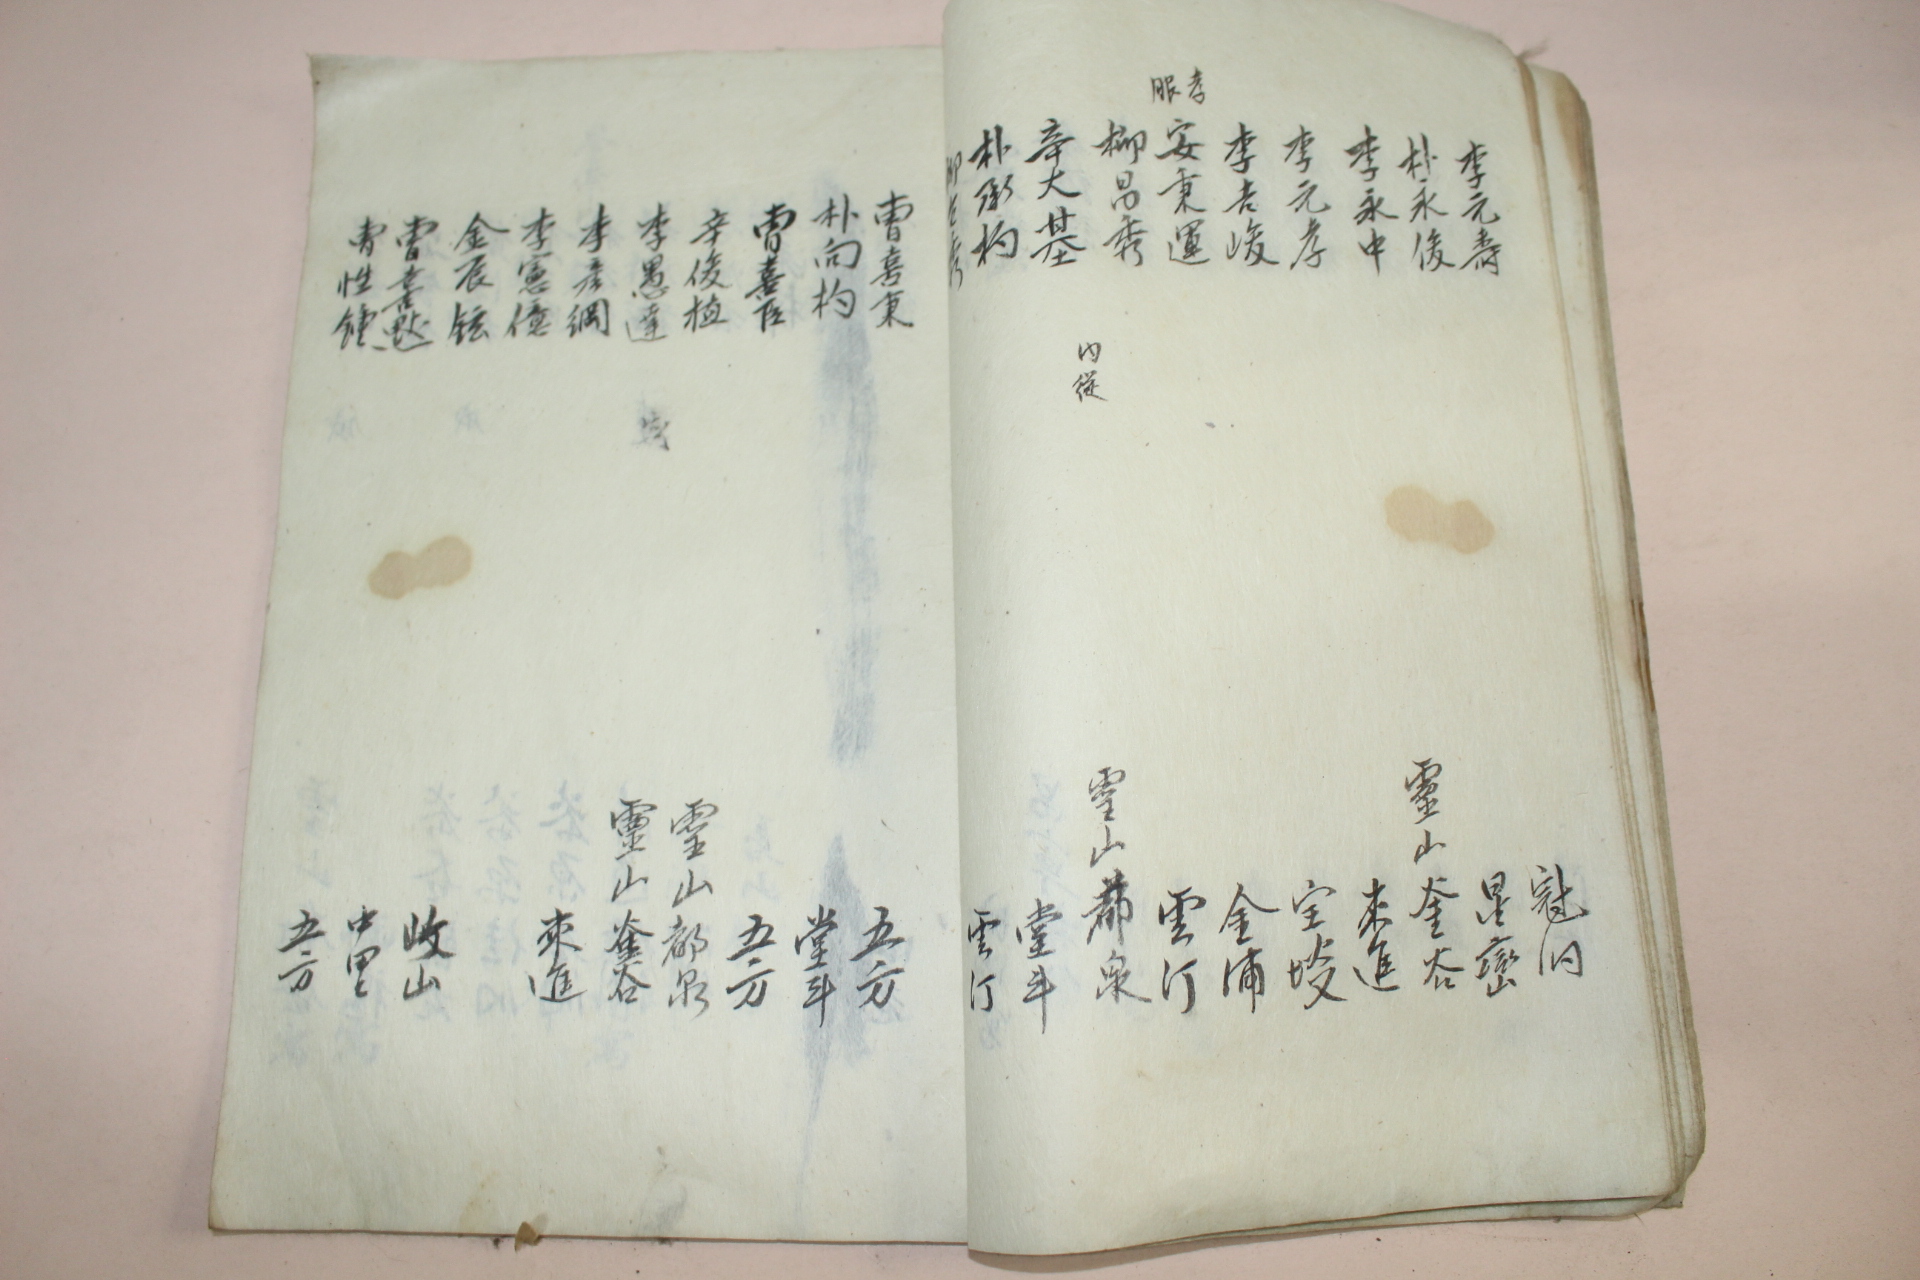 李元壽 冠洞
朴永俊 星巒
李永中 靈山釜谷
李元孝 來進
李吉峻
服孝
安秉運 金浦
柳昌秀 雲汀
內從
辛大基 靈山都泉
朴 杓 堂斗
雲汀
曺喜東 五方
朴向杓 堂斗
曺喜臣 五方
辛俊植 靈山都泉
李愚達 靈山釜谷
李彦綱 來進
李憲億
金辰鉉 收山
曺喜 中里
曺性 五方